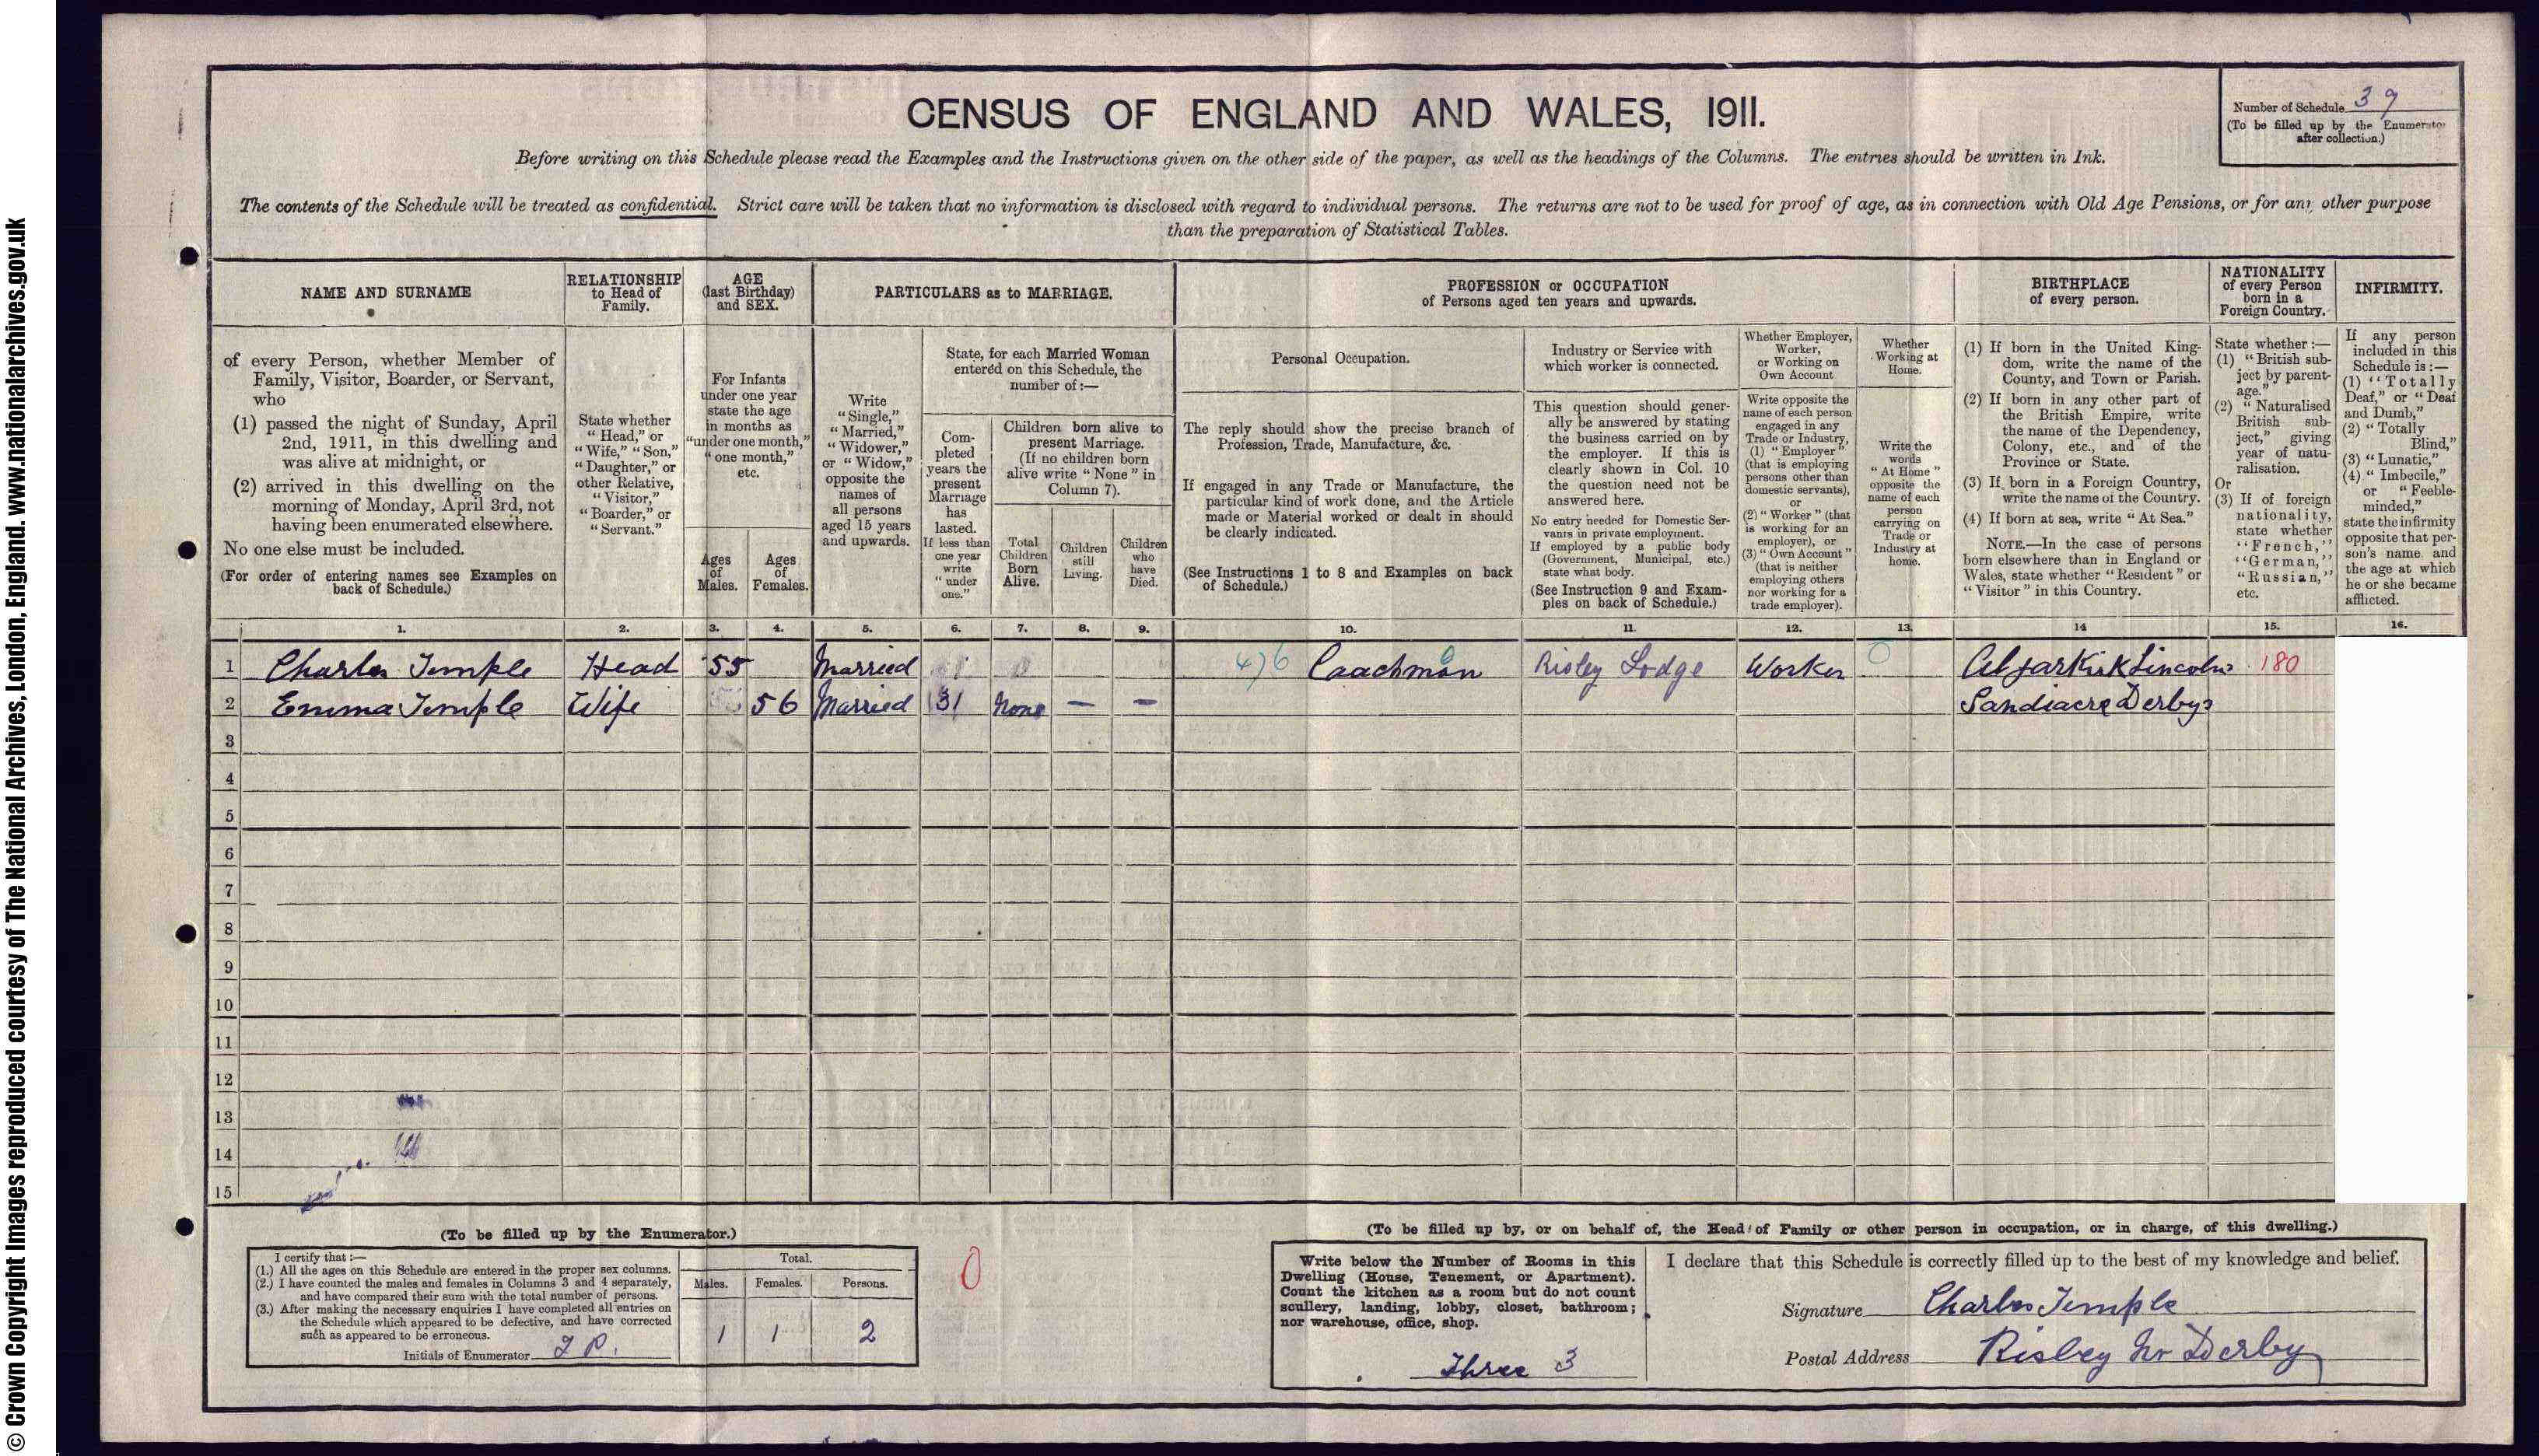 © Crown Copyright Images reproduced courtesy of The National Archives, London, England. www.nationalarchives.gov.uk
CENSUS OF ENGLAND AND WALES, 1911.
Number of Schedule 39
(To be filled up by the Enumerator
after collection.)
Before writing on this Schedule please read the Examples and the Instructions given on the other side of the paper, as well as the headings of the Columns. The entries should be written in Ink.
The contents of the Schedule will be treated as confidential. Strict care will be taken that no information is disclosed with regard to individual persons. The returns are not to be used for proof of age, as in connection with Old Age Pensions, or for any other purpose
than the preparation of Statistical Tables.
NAME AND SURNAME
of every Person, whether Member of
Family, Visitor, Boarder, or Servant,
who
(1) passed the night of Sunday, April
2nd, 1911, in this dwelling and
was alive at midnight, or
(2) arrived in this dwelling on the
morning of Monday, April 3rd, not
having been enumerated elsewhere.
No one else must be included.
(For order of entering names see Examples on
back of Schedule.)
RELATIONSHIP
to Head of
Family.
State whether
"Head," or
"Wife," "Son,"
"Daughter," or
other Relative,
"Visitor,"
"Boarder," or
"Servant."
AGE
(last Birthday)
and SEX.
For Infants
under one year
state the age
in months as
"under one month,"
"one month,"
etc.
Ages
of
Males.
Ages
of
Females.
PARTICULARS as to MARRIAGE.
Write
"Single,"
"Married,"
"Widower,"
or "Widow,"
opposite the
names of
all persons
aged 15 years
and upwards.
State, for each Married Woman
entered on this Schedule, the
number of :—
Com-
pleted
years the
present
Marriage
has
lasted.
If less than
one year
write
"under
one."
Children born alive to
present Marriage.
(If no children born
alive write "None" in
Column 7).
Total
Children
Born
Alive.
Children
still
Living.
Children
who
have
Died.
PROFESSION or OCCUPATION
of Persons aged ten years and upwards.
Personal Occupation.
The reply should show the precise branch of
Profession, Trade, Manufacture, &c.
If engaged in any Trade or Manufacture, the
particular kind of work done, and the Article
made or Material worked or dealt in should
be clearly indicated.
(See Instructions 1 to 8 and Examples on back
of Schedule.)
Industry or Service with
which worker is connected.
This question should gener-
ally be answered by stating
the business carried on by
the employer. If this is
clearly shown in Col. 10
the question need not be
answered here.
No entry needed for Domestic Ser-
vants in private employment.
If employed by a public body
(Government, Municipal, etc.)
state what body.
(See Instruction 9 and Exam-
ples on back of Schedule.)
Whether Employer,
Worker,
or Working on
Own Account
Write opposite the
name of each person
engaged in any
Trade or Industry,
(1) "Employer"
(that is employing
persons other than
domestic servants),
or
(2) "Worker" (that
is working for an
employer), or
(3) "Own Account"
(that is neither
employing others
nor working for a
trade employer).
Whether
Working at
Home.
Write the
words
"At Home"
opposite the
name of each
person
carrying on
Trade or
Industry at
home.
BIRTHPLACE
of every person.
(1) If born in the United King-
dom, write the name of the
County, and Town or Parish.
(2) If born in any other part of
the British Empire, write
the name of the Dependency,
Colony, etc., and of the
Province or State.
(3) If born in a Foreign Country,
write the name of the Country.
(4) If born at sea, write "At Sea."
NOTE.—In the case of persons
born elsewhere than in England or
Wales, state whether "Resident" or
"Visitor" in this Country.
NATIONALITY
of every Person
born in a
Foreign Country.
State whether :—
(1) "British sub-
ject by parent-
age."
(2) "Naturalised
British sub-
ject," giving
year of natu-
ralisation.
Or
(3) If of foreign
nationality,
state whether
"French,"
"German,"
"Russian,"
etc.
INFIRMITY.
If any person
included in this
Schedule is:—
(1) "Totally
Deaf," or "Deaf
and Dumb,"
(2) "Totally
Blind,"
(3) "Lunatic,"
(4) "Imbecile,"
or "Feeble-
minded,"
state the infirmity
opposite that per-
son's name and
the age at which
he or she became
afflicted.
1. 2. 3. 4. 5. 6. 7. 8. 9. 10. 11. 12. 13. 14 15. 16.
1 Charles Temple Head 55 Married 476 Coachman Risley Lodge Worker Algarkirk Lincolns 180
2 Emma Temple Wife 56 Married 31 None — — Sandiacre Derbys
3
4
5
6
7
8
9
10
11
12
13
14
15
(To be filled up by the Enumerator.)
I certify that :—
(1.) All the ages on this Schedule are entered in the proper sex columns.
(2.) I have counted the males and females in Columns 3 and 4 separately,
and have compared their sum with the total number of persons.
(3.) After making the necessary enquiries I have completed all entries on
the Schedule which appeared to be defective, and have corrected
such as appeared to be erroneous.
Initials of Enumerator
Total.
Males. Females. Persons.
1 1 2
0
(To be filled up by, or on behalf of, the Head of Family or other person in occupation, or in charge, of this dwelling.)
Write below the Number of Rooms in this
Dwelling (House, Tenement, or Apartment).
Count the kitchen as a room but do not count
scullery, landing, lobby, closet, bathroom;
nor warehouse, office, shop.
Three 3
I declare that this Schedule is correctly filled up to the best of my knowledge and belief.
Signature Charles Temple
Postal Address Risley Nr Derby